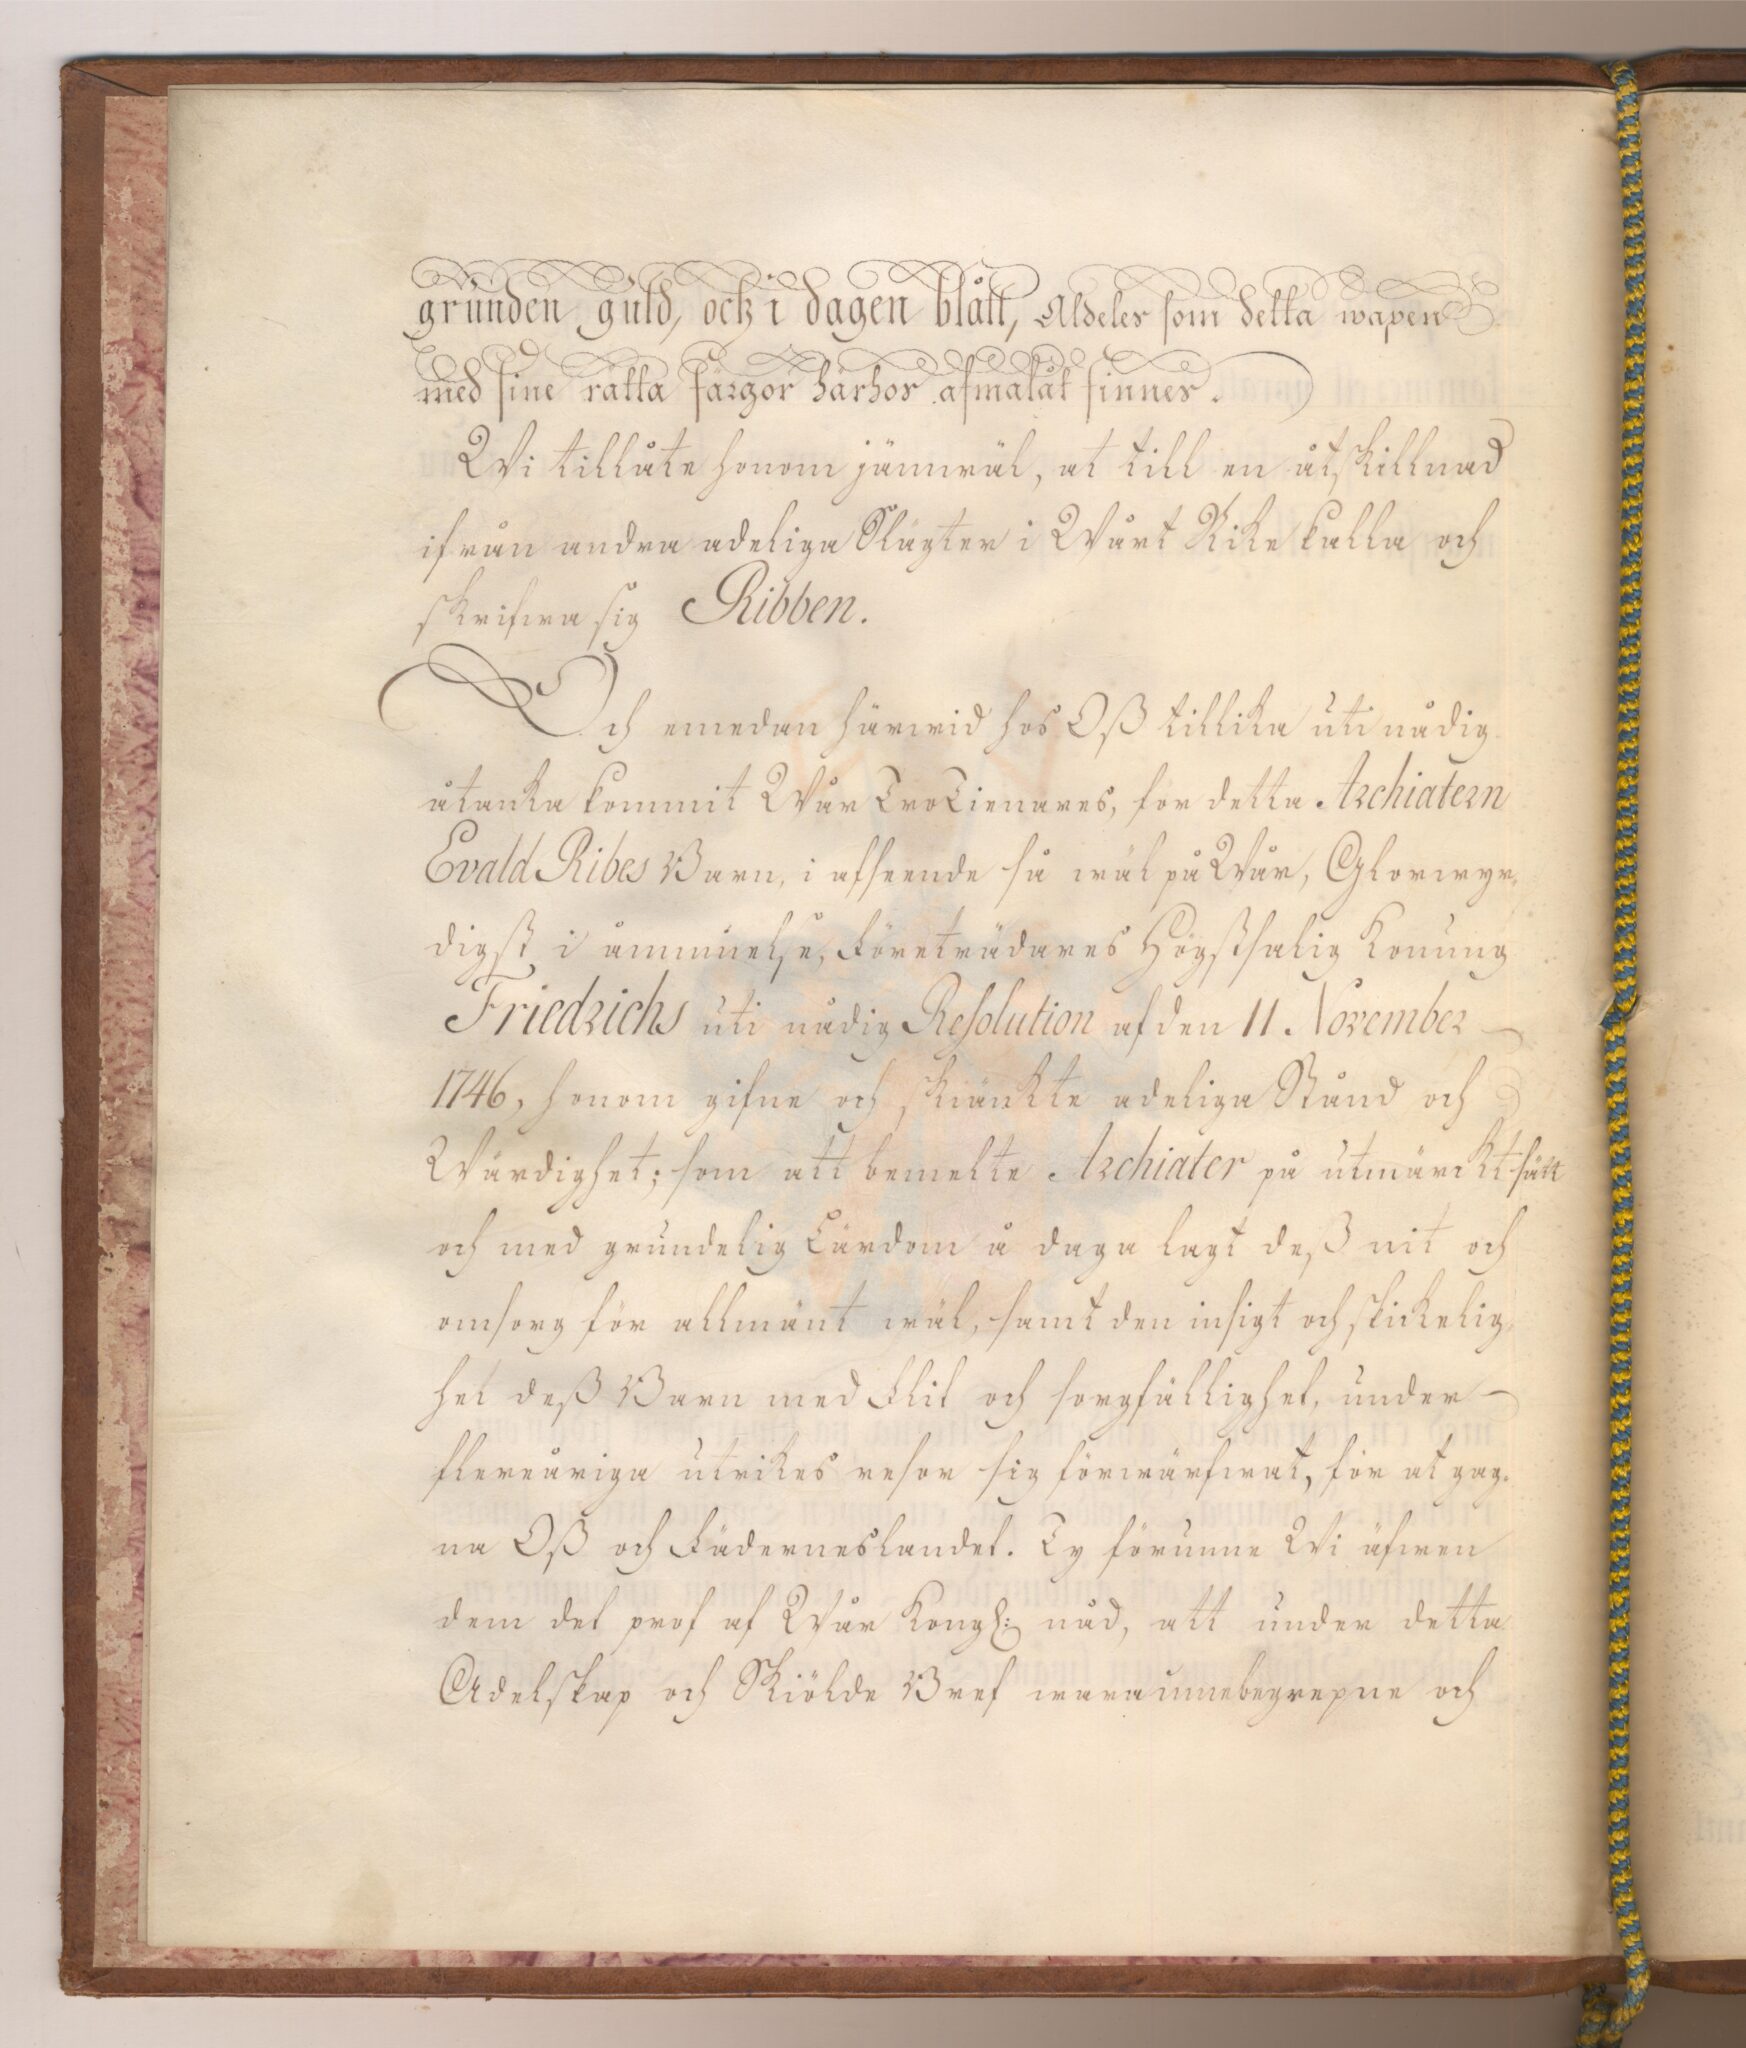 grunden guld, och i dagen blått, Aldeles som detta wapen
med sine rätta färgor härhos afmalat finnes.
Wi tillåte honom jämwäl, at till en åtskillnad
ifrån andra adeliga Slägter i Wårt Rike kalla och
skrifwa sig Ribben.
Och emedan härwid hos Oß tillika uti nådig
åtanka kommit Wår TroTienares, for detta Archiatern
Evald Ribes Barn, i afseende så wäl på Wår, Glorwyr-
digst i åminnelse, Företrädares Högstsalig Konung
Friedrichs uti nådig Resolution af den 11 November
1746, honom gifne och skiänkte adeliga Stånd och
Wärdighet; som att bemelte Archiater på utmärckt sätt
och med grundelig Lärdom å daga lagt deß nit och
omsorg för allmänt wäl, samt den insigt och skickelig-
het deß Barn med Flit och sorgfällighet, under
flereåriga utrikes resor sig förwärfwat, för at gag-
na Oß och Fäderneslandet. Ty förunne Wi äfwen
dem det prof af Wår Kongl: nåd, att under detta
Adelskap och Skiölde Bref wara innebegrepne och